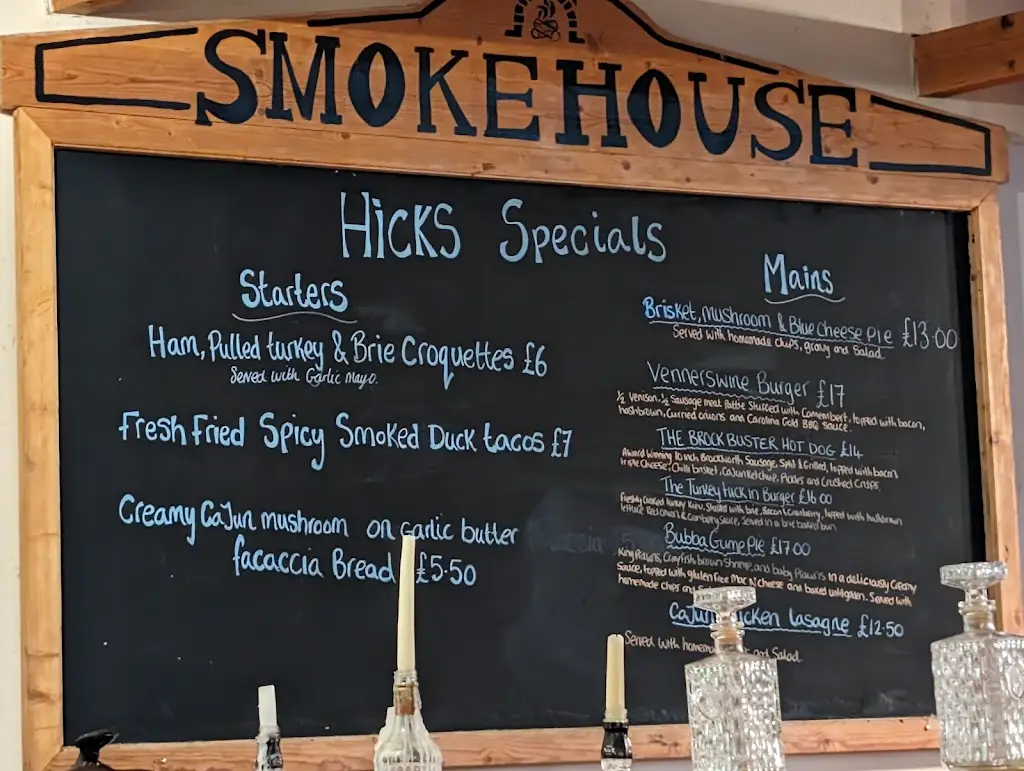 SMOKEHOUSE
HICKS Specials
Starters
Ham, Pulled turkey & Brie Croquettes £6
Served with Garlic Mayo.
Fresh Fried Spicy Smoked Duck tacos £7
Creamy Cajun mushroom on garlic butter
facaccia Bread £5.50
Mains
Brisket, mushroom & Blue cheese Pie £13.00
Served with homemade chips, gravy and Salad.
Vennerswine Burger £17
½ Venison, ½ Sausage meat Pattie Stuffed with Camembert, topped with bacon,
hashbrown, Curried onions and Carolina Gold BBQ Sauce.
THE BROCK BUSTER HOT DOG £14
Award Winning 10 inch Brockworth Sausage, Split & Grilled, topped with bacon
triple cheese, Chilli brisket, Cajun Ketchup, Pickles and Crushed Crisps.
The Turkey tuck in Burger £16.00
Freshly Cooked turkey Kiev, Stuffed with brie, Bacon & Cranberry, topped with hashbrown
lettuce Red onion & Cranberry Sauce, Served in a brie baked bun
Bubba Gume Pie £17.00
King Prawns, Crayfish, brown Shrimp, and baby Prawns in a deliciously Creamy
Sauce, topped with gluten free Mac N cheese and baked until golden. Served with
homemade chips and
Cajun lasagne £12.50
Served with and Salad.